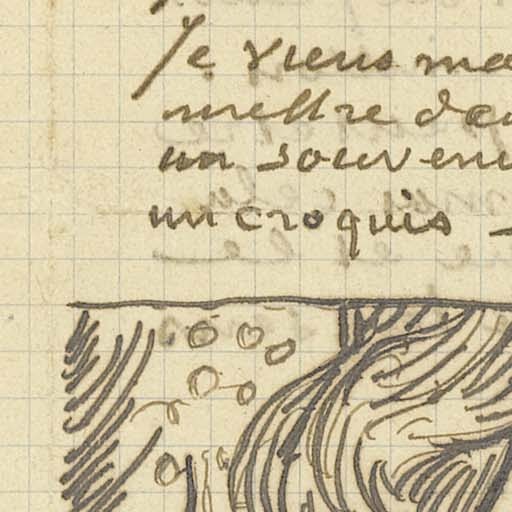 Je viens ma
mettre da
un souveni
un croquis -